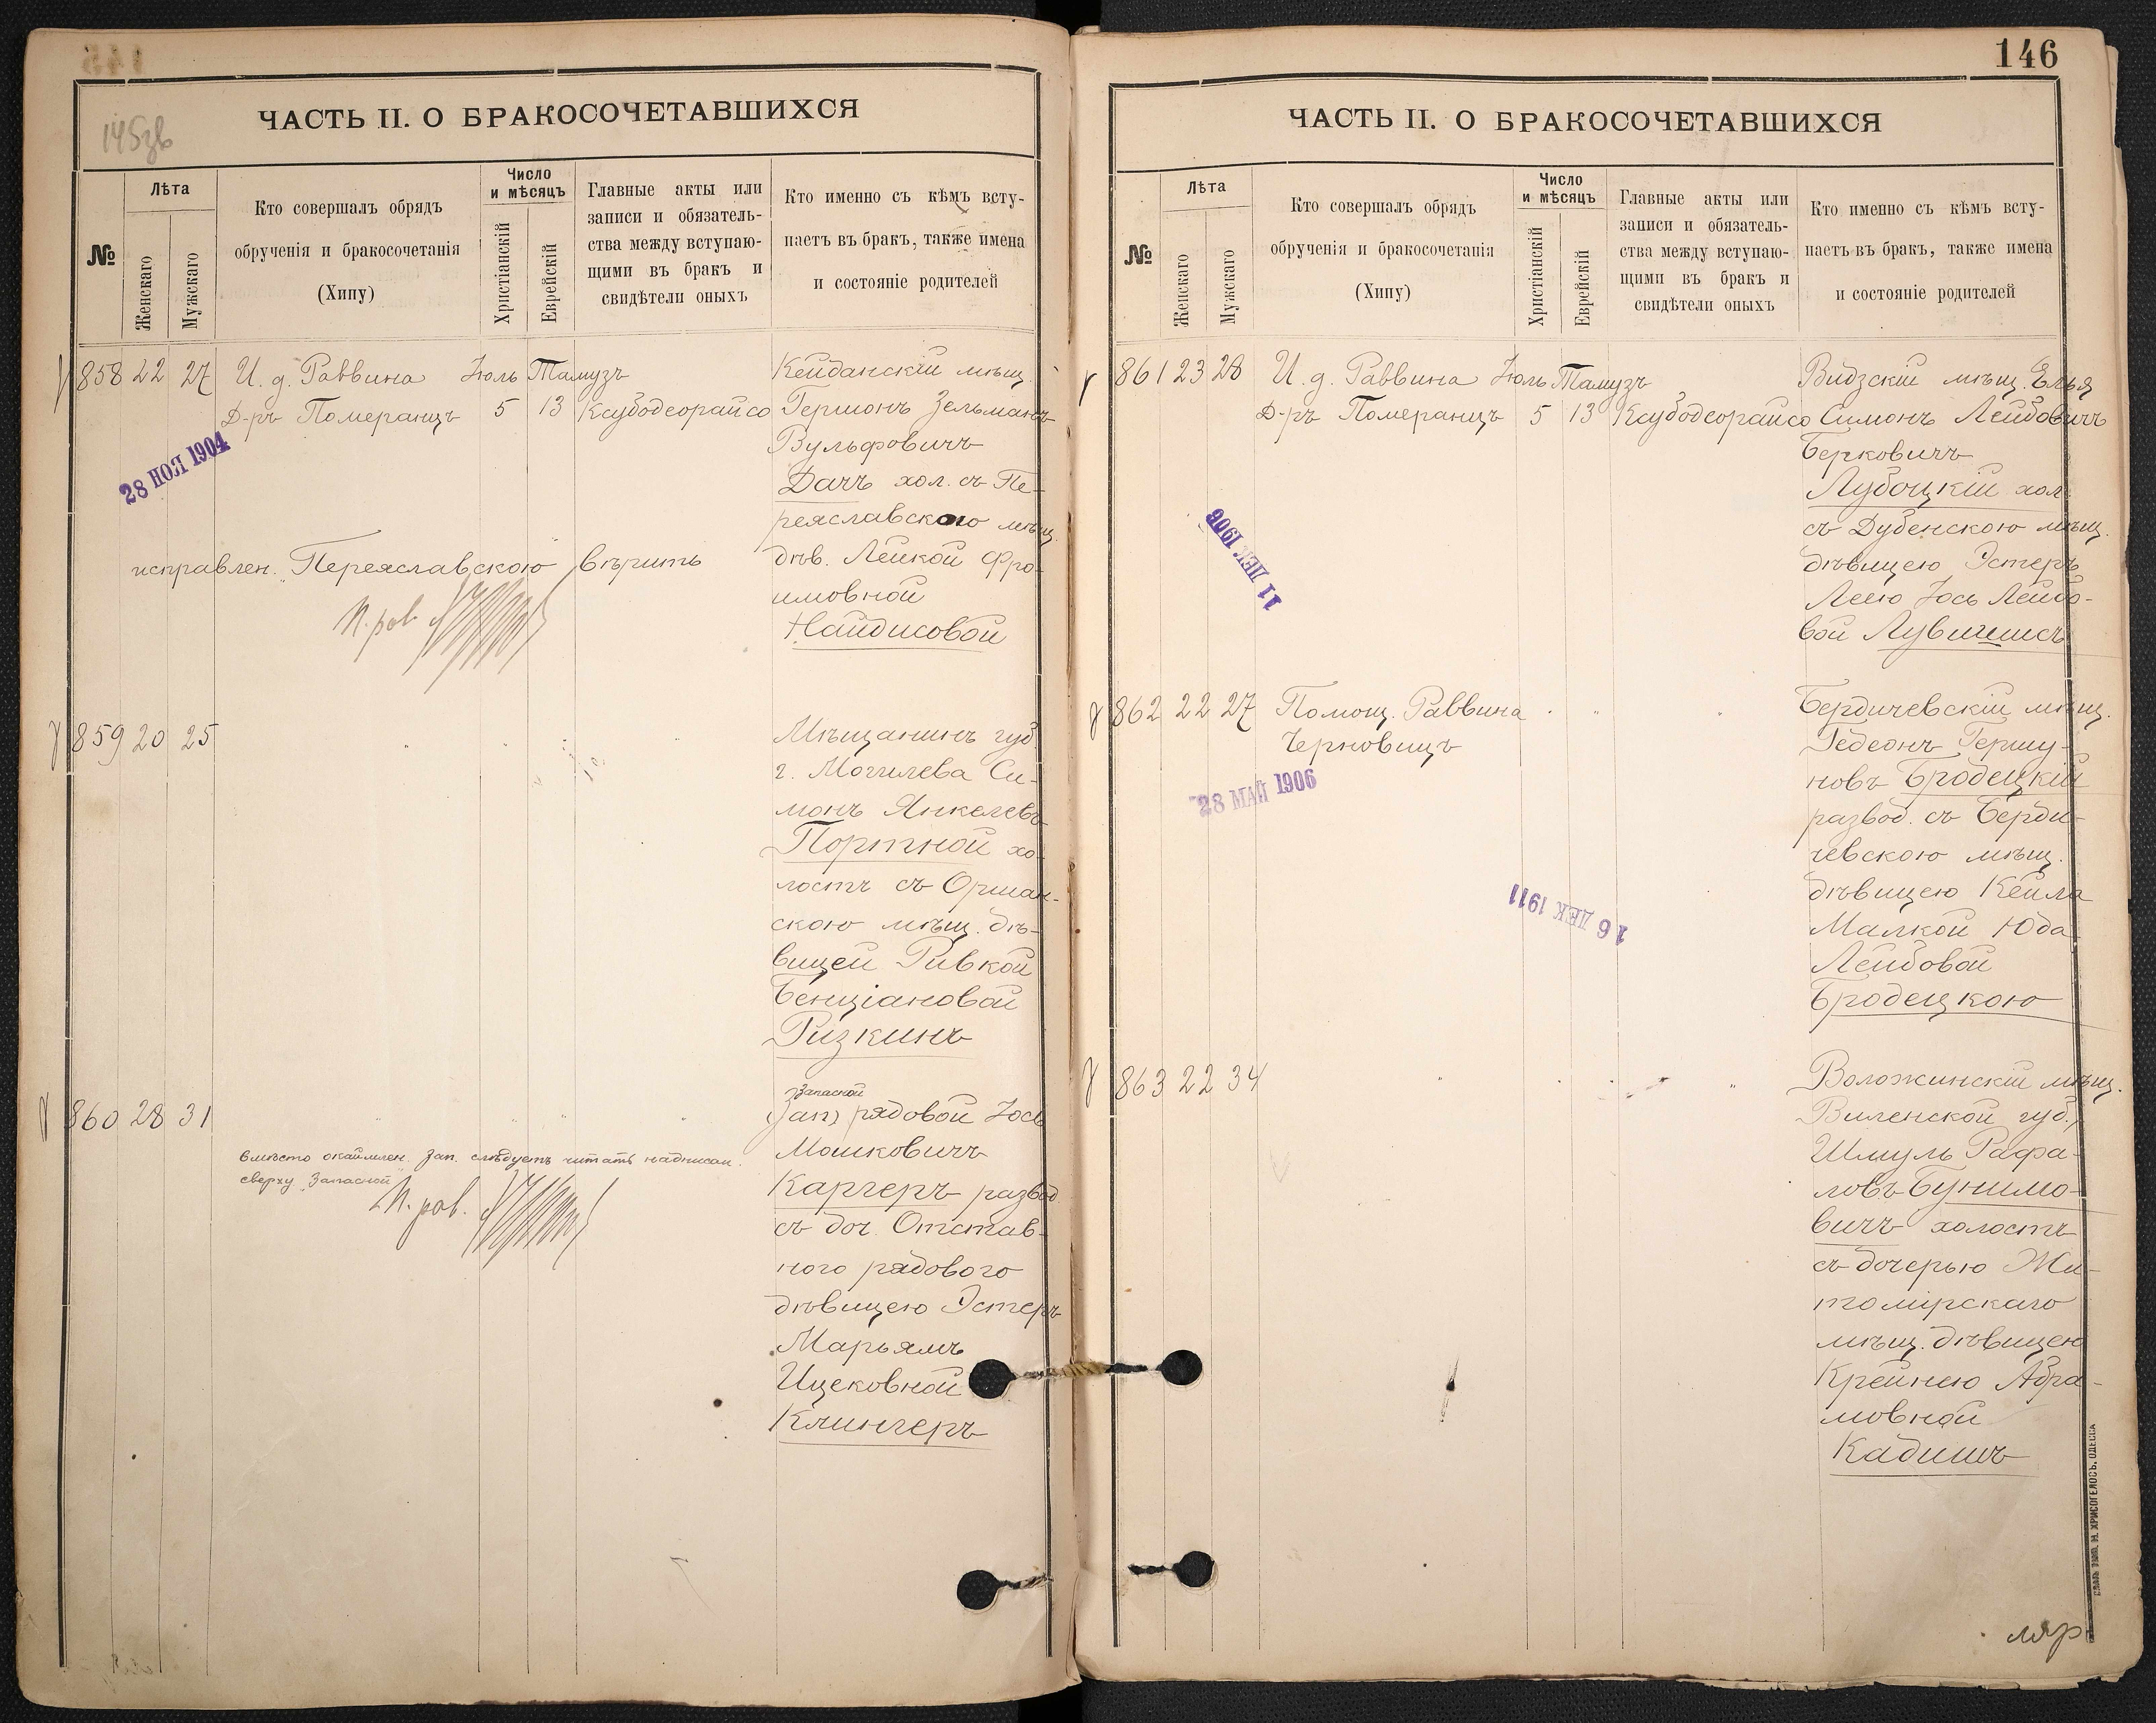 145зв
ЧАСТЬ II. О БРАКОСОЧЕТАВШИХСЯ
№
Лѣта
Женскаго
Мужскаго
Кто совершалъ обрядъ
обрученія и бракосочетанія
(Хипу)
Число
и мѣсяцъ
Христіанскій
Еврейскій
Главные акты или
записи и обязатель-
ства между вступаю-
щими въ бракъ и
свидѣтели оныхъ
Кто именно съ кѣмъ всту-
паетъ въ бракъ, также имена
и состояніе родителей
858 22 27
И. д. Раввина
Д-ръ Померанцъ
Іюль
5
Тамузъ
13
Ксубодеорайсо
Кейданскій мѣщ.
Гершонъ Зельманъ
Вульфовичъ
Дачъ хол. съ Пе-
реяславского мѣщ.
дѣв. Лейкой Фро-
имовной
Найдисовой
28 НОЯ 1904
исправлен. „Переяславскою" вѣрить
859 20 25
Мѣщанинъ губ.
г. Могилева Си-
монъ Янкелевъ
Портной хо-
лостъ съ Оршан-
скою мѣщ. дѣ-
вицей Ривкой
Бенціановой
Ризкинъ
860 28 31
Запасной
(Зап) рядовой Іось
Мошковичъ
Каргеръ развод.
съ доч. Отстав-
ного рядового
дѣвицею Эстеръ
Марьямъ
Ицековной
Клингеръ
вмѣсто окаймлен. Зап. слѣдуетъ читать надписан.
сверху „Запасной"
146
ЧАСТЬ II. О БРАКОСОЧЕТАВШИХСЯ
№
Лѣта
Женскаго
Мужскаго
Кто совершалъ обрядъ
обрученія и бракосочетанія
(Хипу)
Число
и мѣсяцъ
Христіанскій
Еврейскій
Главные акты или
записи и обязатель-
ства между вступаю-
щими въ бракъ и
свидѣтели оныхъ
Кто именно съ кѣмъ всту-
паетъ въ бракъ, также имена
и состояніе родителей
861 23 28
И. д. Раввина
Д-ръ Померанцъ
Іюль
5
Тамузъ
13
Ксубодеорайсо
Видзскій мѣщ. Елья
Симонъ Лейбовичъ
Берковичъ
Лубоцкій хол.
съ Дубенскою мѣщ.
дѣвицею Эстеръ
Леею Іось Лейбо-
вой Лувишисъ
11 ДЕК 1906
862 22 27
Помощ. Раввина
Черновицъ
28 МАЙ 1906
16 ДЕК 1911
Бердичевскій мѣщ.
Гедеонъ Гершу-
новъ Бродецкій
развод. съ Берди-
чевскою мѣщ.
дѣвицею Кейла
Малкой Юда
Лейбовой
Бродецкою
863 22 34
Воложинскій мѣщ.
Виленской губ.,
Шмуль Рафа-
ловъ Бунимо-
вичъ холостъ
съ дочерью Жи-
томірскаго
мѣщ. дѣвицею
Крейнею Абра-
мовной
Кадишъ